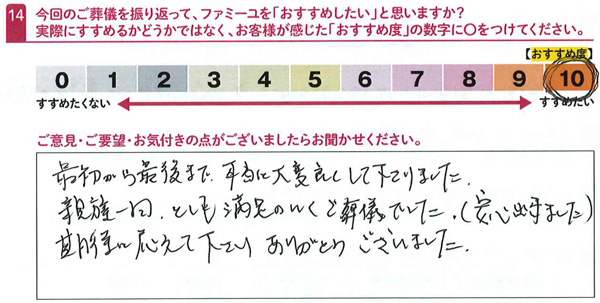 14 今回のご葬儀を振り返って、ファミーユを「おすすめしたい」と思いますか?
実際にすすめるかどうかではなく、お客様が感じた「おすすめ度」の数字に〇をつけてください。
【おすすめ度】
0 1 2 3 4 5 6 7 8 9 10
すすめたくない すすめたい
ご意見・ご要望・お気付きの点がございましたらお聞かせください。
最初から最後まで、本当に大変良くして下さりました。
親族一同、とても満足のいくご葬儀でした。(安心出来ました)
期待に応えて下さり ありがとうございました。